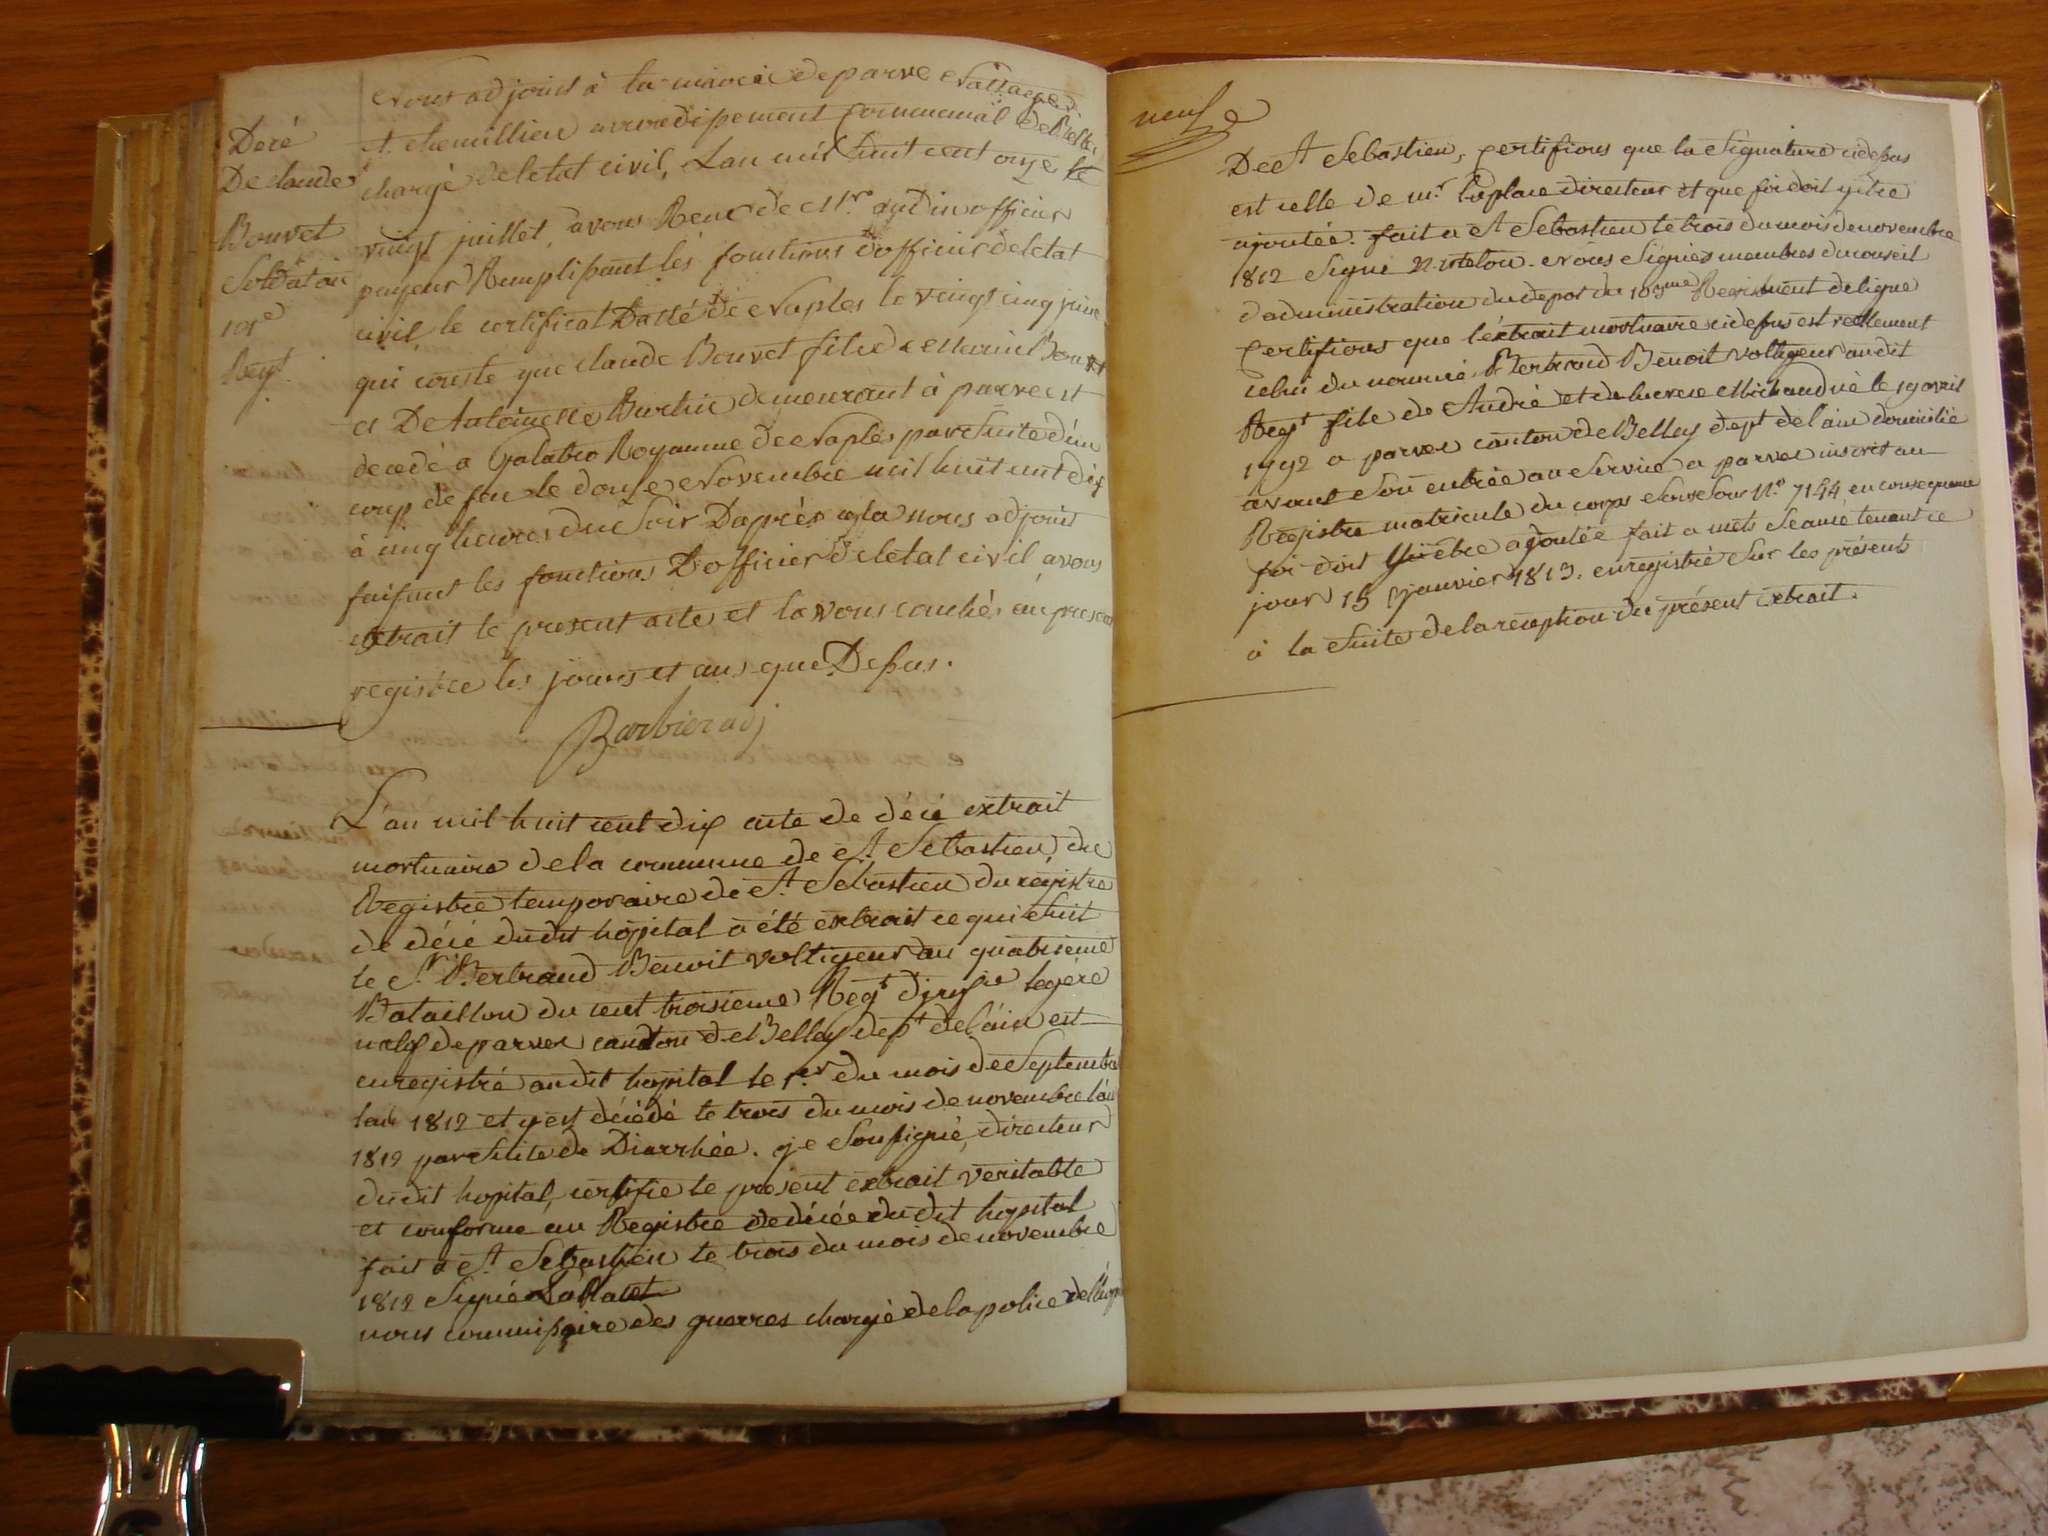 Déce
De claude
Bouvet
Soldat au
101e
Regt.
Nous adjoint à la mairie de parve Nattages
et chemillieu arrondissement communal de Belley
chargé de letat civil, Lan mil huit cent onze le
vingt juillet, avons Recu de Mr. audin officier
payeur Remplissant les fonctions d'officier de letat
civil, le certificat Datté de Naples le vingt cinq juin
qui conste que claude Bouvet fils de Marin Bouvet
et De Antoinette Burtin demeurant à parve est
decedé a Calabro Royaume de Naples par Suite d'un
coup de feu le douze Novembre mil huit cent dix
à cinq heures du Soir D'après cela nous adjoint
faisant les fonctions D'officier de letat civil avons
extrait le present acte et lavons couché au present
registre les jours et ans que Dessus.
Barbier adj
L'an mil huit cent dix acte de décé extrait
mortuaire de la commune de St Sebastien, du
Registre temporaire de St Sébastien du régistre
de décé dudit hôpital a été extrait ce qui Suit
le Sr Bertrand Benoit voltigeur au quatrieme
Bataillon du cent troisieme Regt d'jnfie legére
natif de parves canton de Belley dept de l'ain est
enregistré audit hopital le 1er du mois de Septembre
lan 1812 et y est décédé le trois du mois de novembre l'an
1812 par Suite de Diarrhée. je Soussigné, directeur
dudit hopital, certifie le present extrait veritable
et conforme au Registre de décée du dit hopital
fait a St Sebastien le trois du mois de novembre
1812 Signé Laplace
nous commissaire des guerres chargé de la police de l'hopital
neuf
De St Sebastien, certifions que la Signature cidessus
est celle de mr laplace directeur et que foi doit y etre
ajoutée. fait a St Sebastien le trois du mois de novembre
1812 Signé Nous Signés membres du conseil
dadministration du depot du 103me Regiment de ligne
certifions que l'extrait mortuaire cidessus est reellement
celui du nommé Bertrand Benoit voltigeur audit
Regt fils de André et de lucrece Michaud né le 19 avril
1792 a parves canton de Belley dept de l'ain domicilié
avant Son entrée au Service a parves inscrit au
Registre matricule du corps Sous Son No 7144, en consequence
foi doit y être ajoutée fait a mets Seance tenante ce
jour 15 janvier 1813. enregistré Sur les présents
à la Suite de la reception du présent extrait.